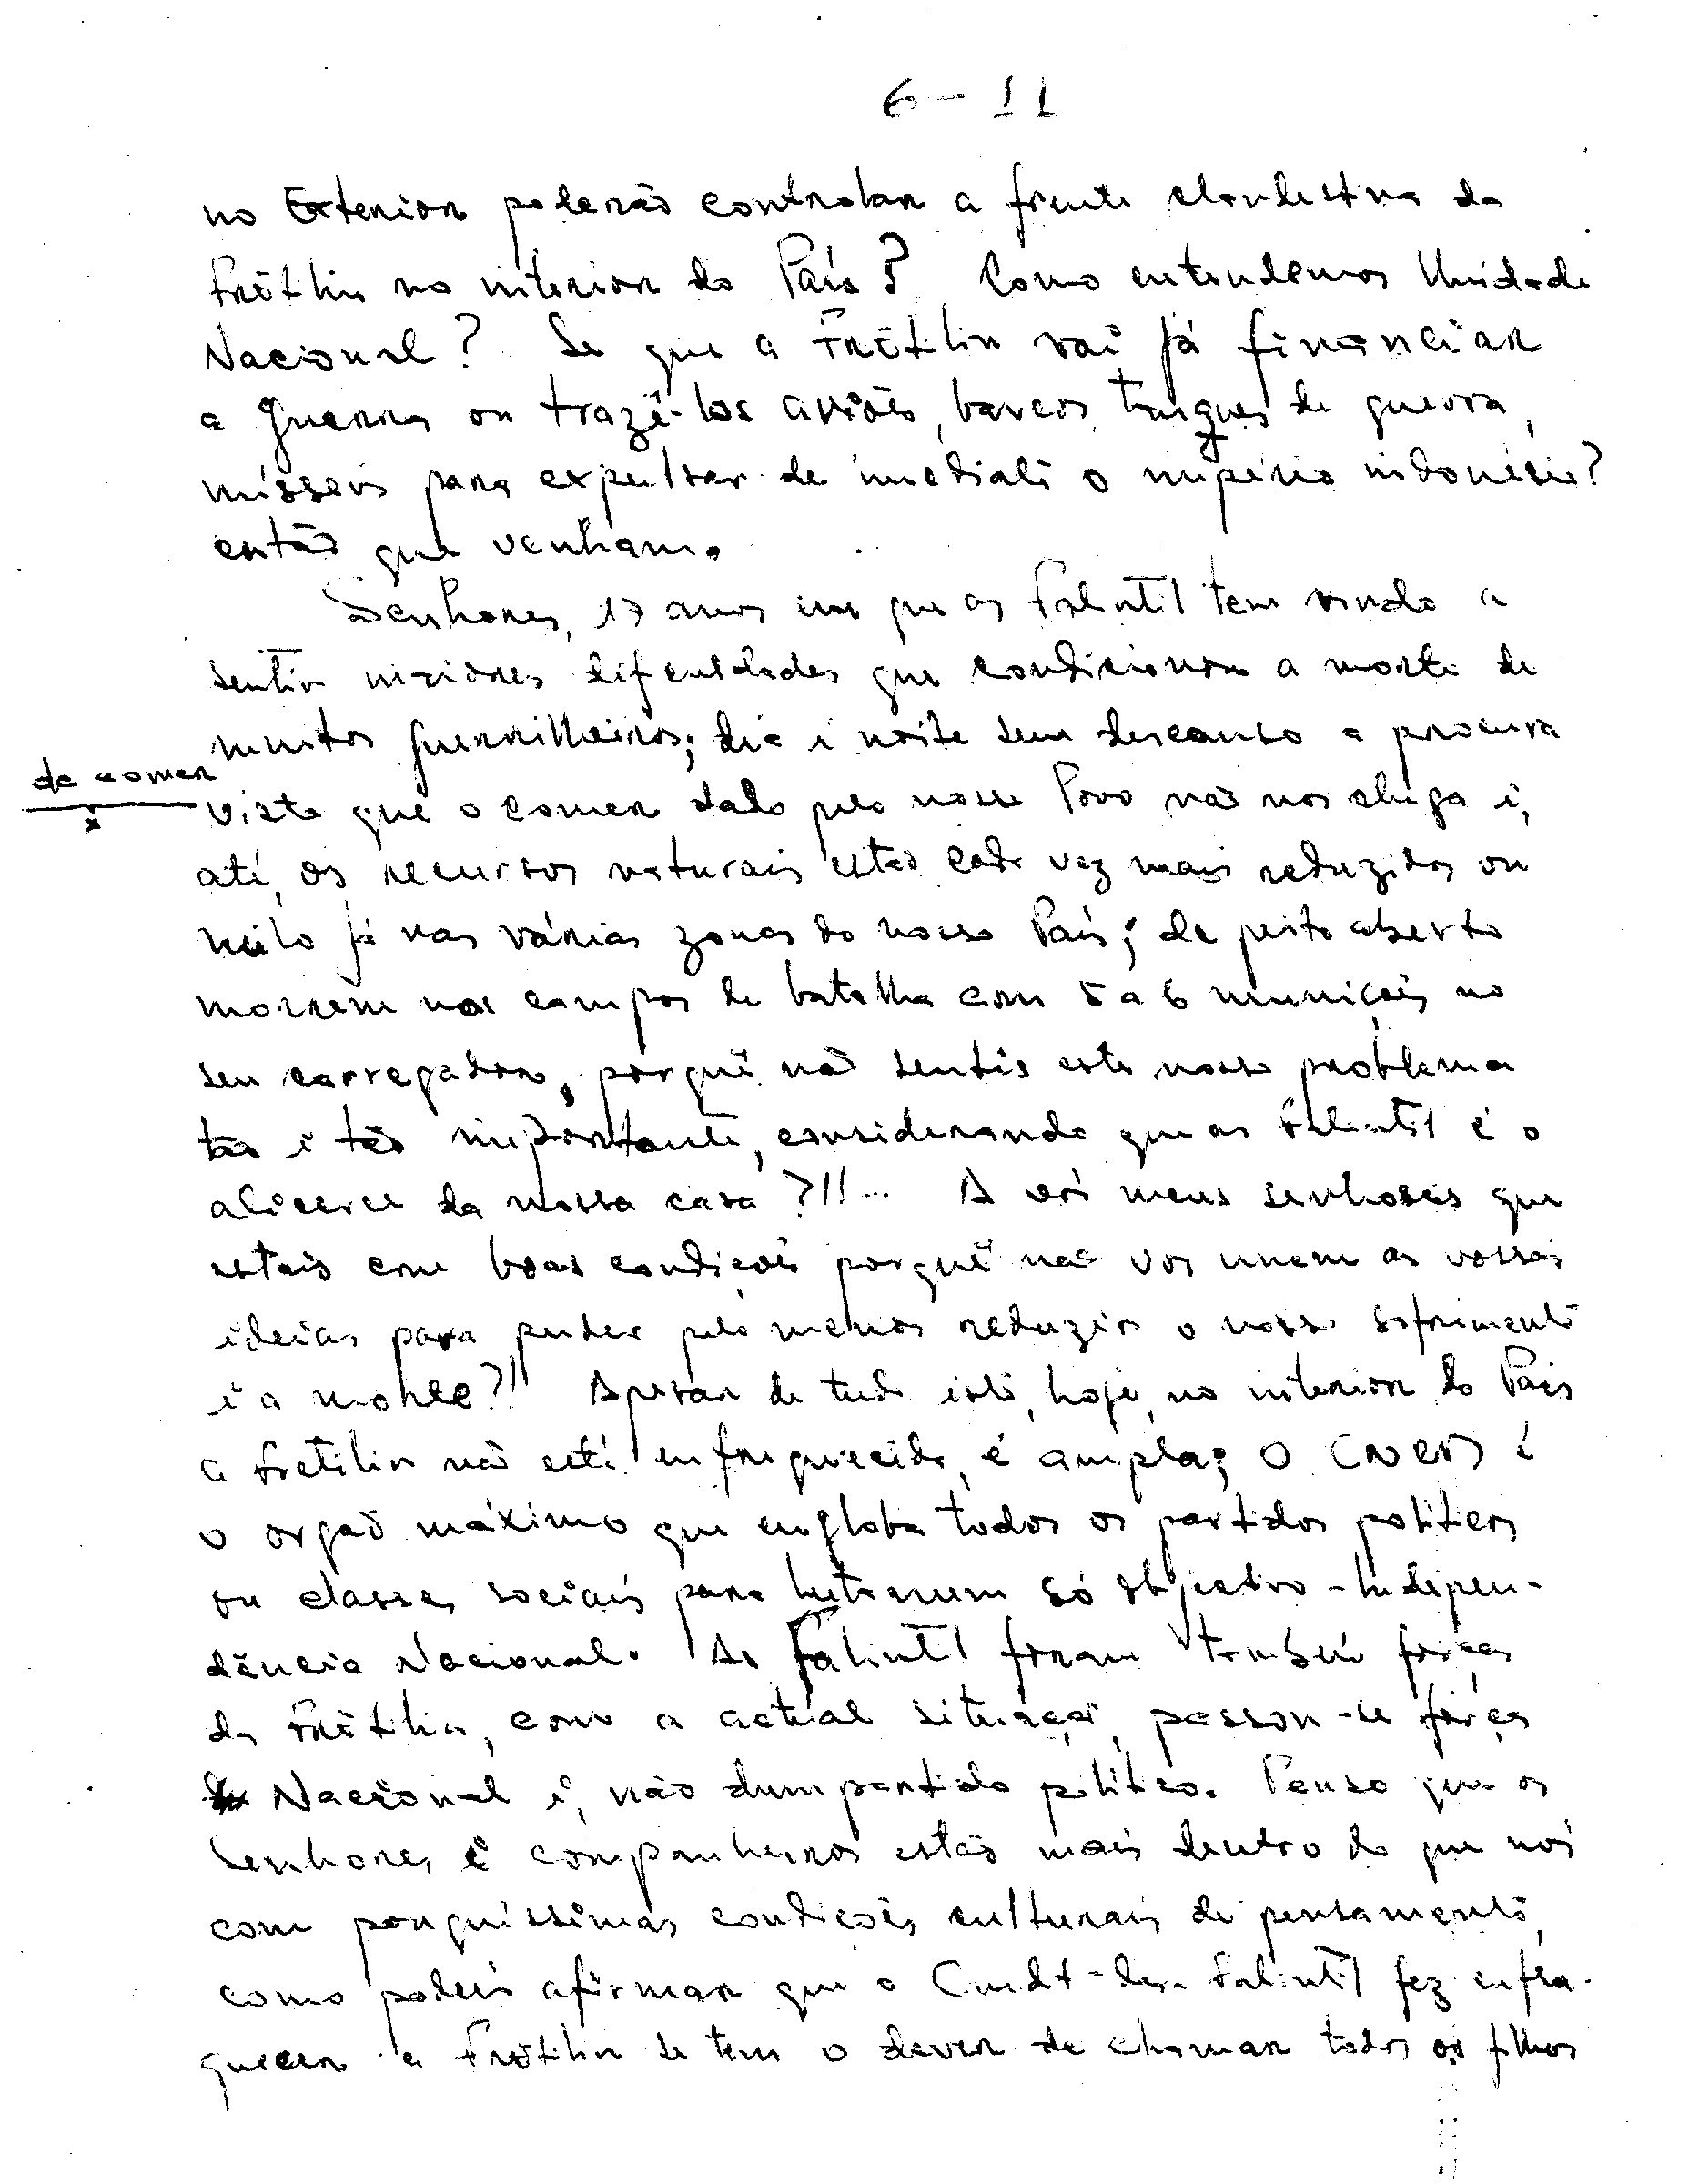 6 - 11
no Exterior poderão controlar a frente clandestina da
Frētilin no interior do País? Como entendemos Unidade
Nacional? Se que a Frētilin vai já financiar
a guerra ou trazê-los aviões, barcos, tanques de guerra,
mísseis para expulsar de imediato o império indonésio?
então que venham.
Senhores, 17 anos em que as Falintil tem vindo a
sentir maiores dificuldades que condicionam a morte de
muitos guerrilheiros; dia i noite sem descanso a procura
de comer
x
visto que o comer dado pelo nosso Povo não nos chega i,
até, os recursos naturais estão cada vez mais reduzidos ou
nulo já nas várias zonas do nosso País; de peito aberto
morrem nos campos de batalha com 5 a 6 munições no
seu carregador, porquê não sentis este nosso problema
tão i tão importante, considerando que as Falintil é o
alicerce da nossa casa?!!... A vós meus senhores que
estais com boas condições porquê não vos unem as vossas
ideias para puder pelo menos reduzir o nosso sofrimento
i a morte?!! Apesar de tudo isto, hoje, no interior do País
a Fretilin não está enfraquecida, é ampla; O CNRM é
o orgão máximo que engloba todos os partidos políticos
ou classes sociais para lutar num só objectivo - Indepen-
dência Nacional. As Falintil foram também forças
da Frētilin, com a actual situação, passou-se forças
Nacional i, não dum partido político. Penso que os
Senhores e companheiros estão mais dentro do que nós
com pouquíssimas condições culturais de pensamento,
como podeis afirmar que o Cmdt-das Falintil fez enfra-
quecer a Frētilin se tem o dever de chamar todos os filhos